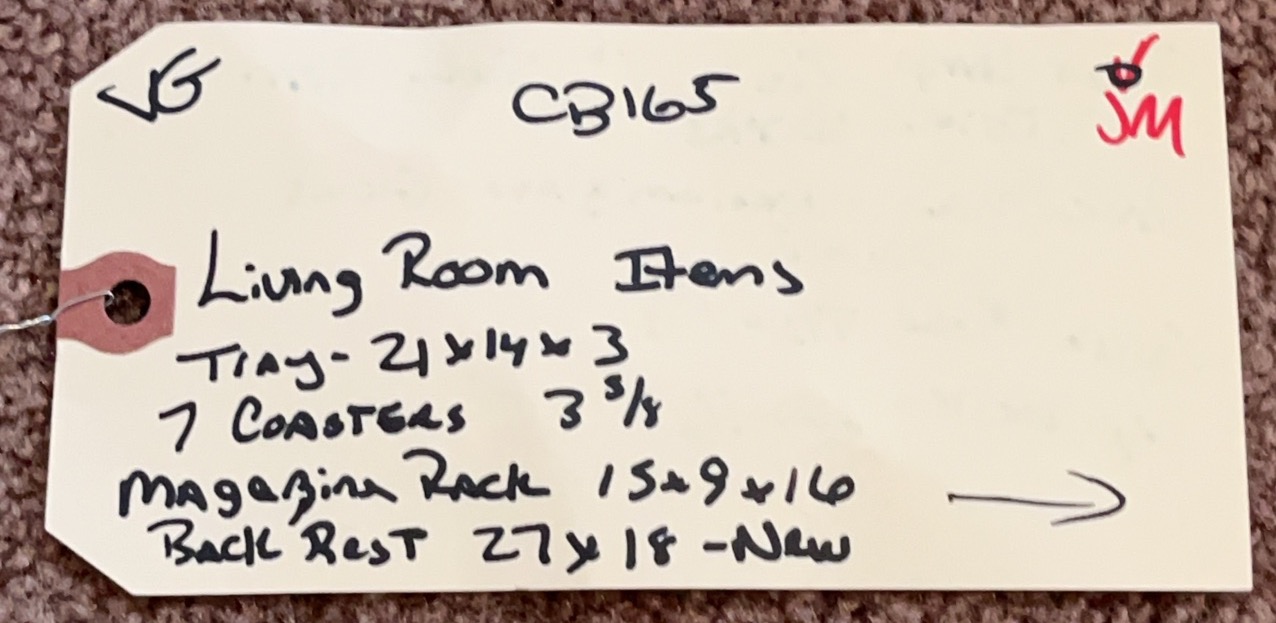 VG CB165 JM
Living Room Items
Tray- 21 x 14 x 3
7 COASTERS 3 5/8
Magazine Rack 15 x 9 x 16
Back Rest 27 x 18 - New